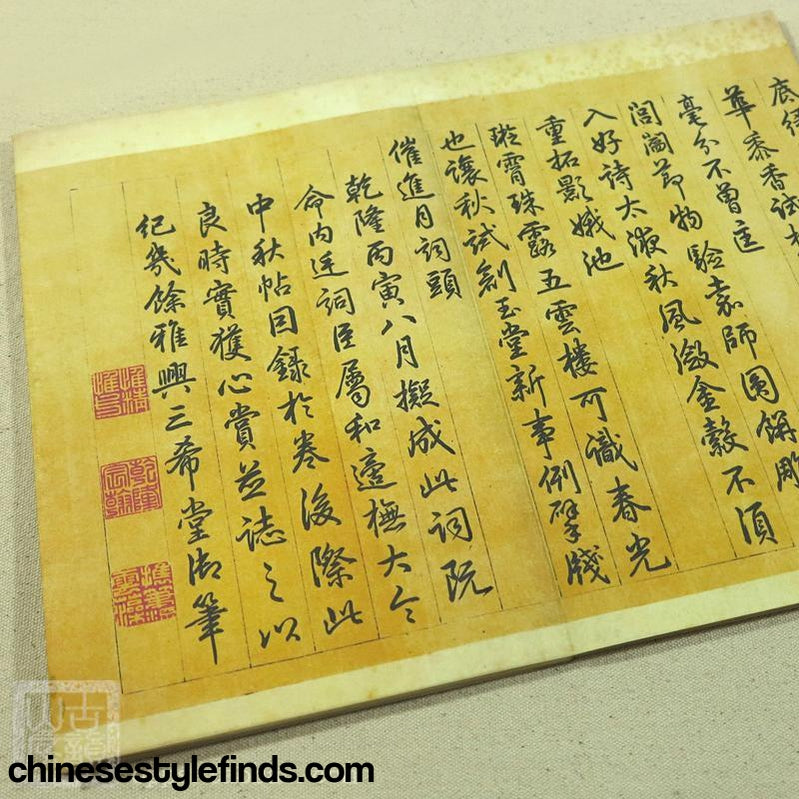 底
華黍香試
毫分不曾迋
閶闔節物驗嘉師圓餅彫
入好詩太液秋風瀲金縠不須
重拓影娥池
璇霄珠露五雲樓可識春光
也讓秋試剏玉堂新事例擘牋
催進月詞頭
乾隆丙寅八月擬成此詞既
命内廷詞臣屬和遂橅大令
中秋帖因錄於卷後際此
良時實獲心賞並誌之以
紀幾餘雅興三希堂御筆
乾隆宸翰
chinesestylefinds.com